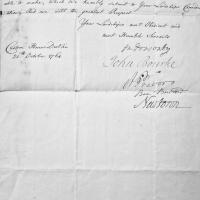 able to make, which we humbly submit to Your Lordships Consider
ation, and are with the greatest Respect
Your Lordships most Obedient and
most Humble Servants
Custom House Dublin
20th October 1764
John Bourke
Ben Burton